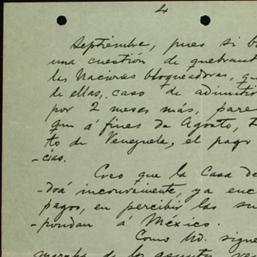 4
Septiembre, pues si b
una cuestión de quebrant
las Naciones bloqueadoras, qu
de ellas, caso de admitir
por 2 meses más, pare
que á fines de Agosto, t
to de Venezuela, el pago
-cias.
Creo que la Casa de
-drá inconveniente, ya enc
pagos, en percibir las su
-pondan á México.
Como Ud. sigue
marcha de los asuntos ven